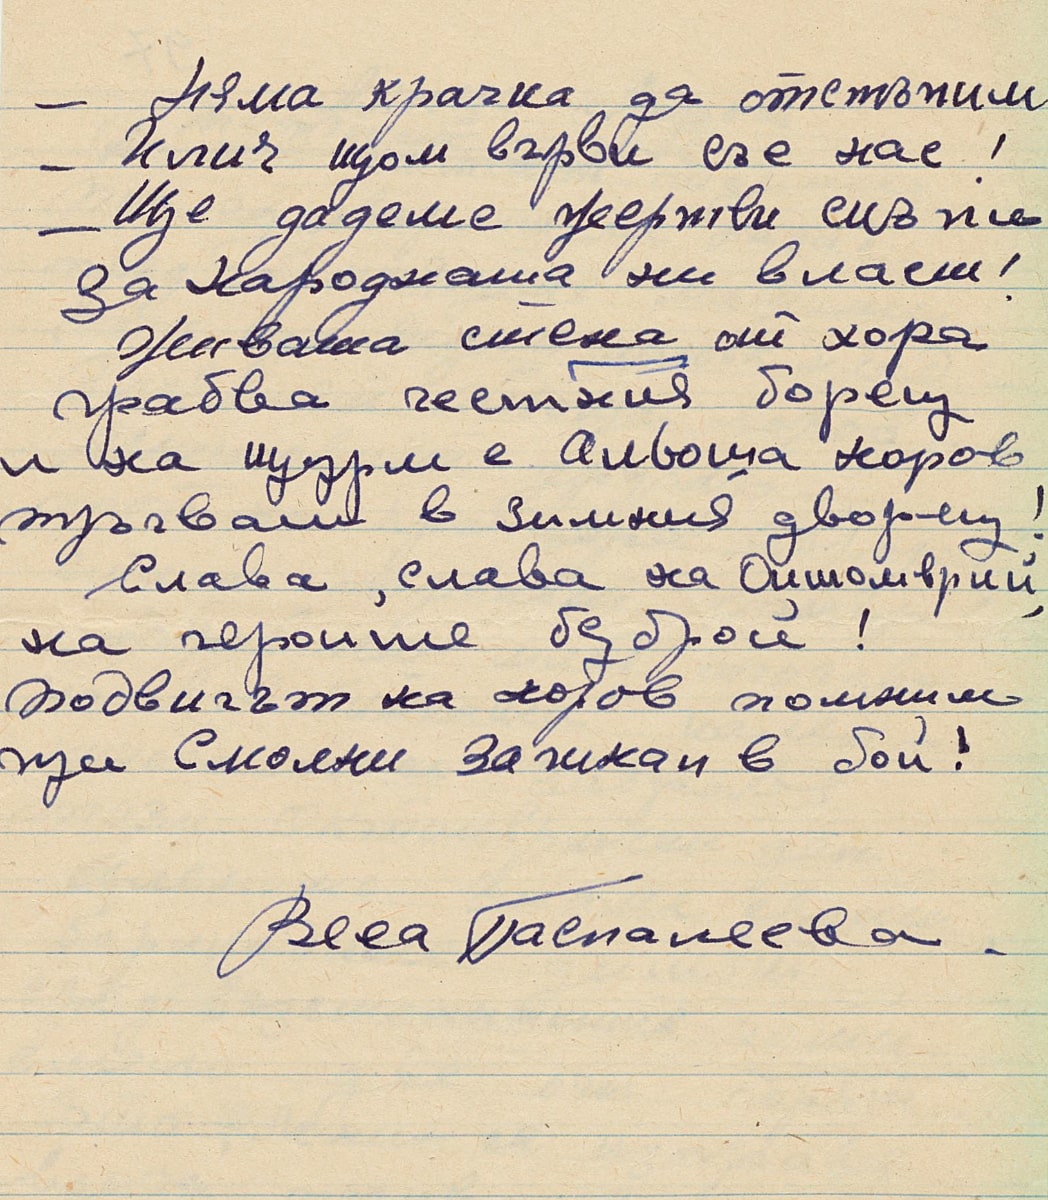 — Няма крачка да отстъпим
— Илич щом върви със нас!
— Ще дадеме жертви скъпи
за народната ни власт!
Живата стена от хора
грабва честния борец
и на щурм с Альоша Жоров
тръгват в зимния дворец!
Слава, слава на Октомврий,
на героите безброй!
Подвигът на Жоров помним
при Смолни загинал в бой!
Веса Паспалеева.